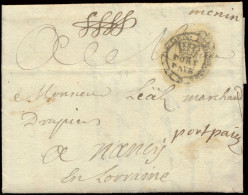 menin
PORT
PAYE
a Monsieur Leal marchand
Drapier
port paié
a nancy
En Lorraine